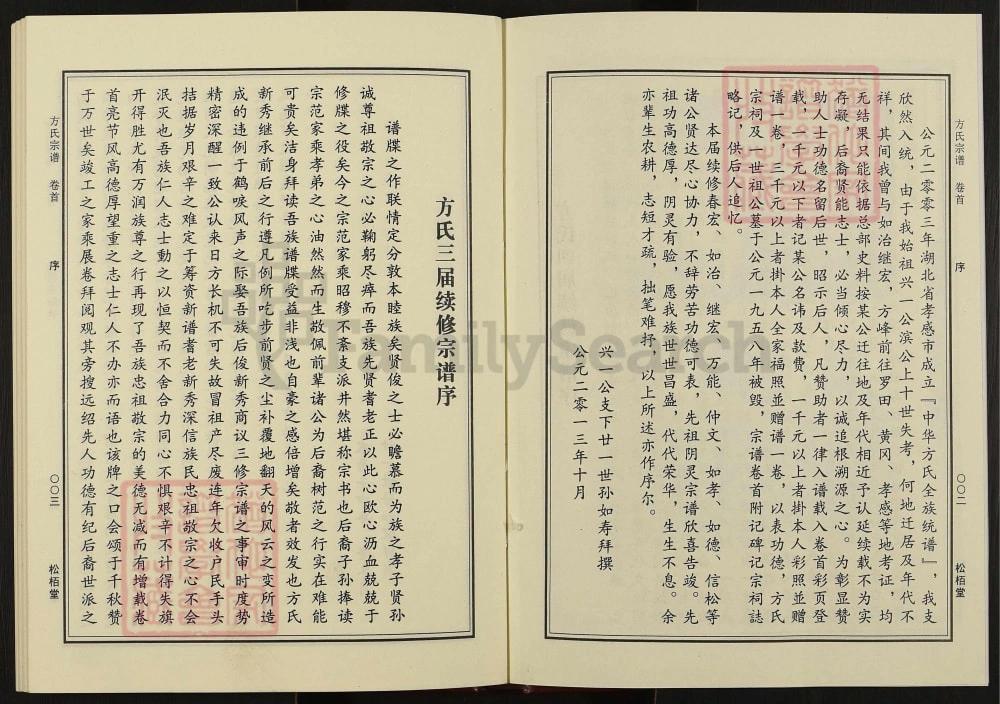 方氏宗谱 卷首 序 〇〇二 松栢堂
公元二零零三年湖北省孝感市成立『中华方氏全族统谱』，我支
欣然入统，由于我始祖兴一公滨公上十世失考，何地迁居及年代不
祥，其间我曾与如治继宏，方峰前往罗田、黄冈、孝感等地考证，均
无结果只能依据总部史料按某公迁往地及年代相近予认延续载不为实
存凝，后裔贤能志士，必当倾心尽力，以诚追根溯源之心。为彰显赞
助人士功德名留后世，昭示后人，凡赞助者一律入谱载入卷首彩页登
载，一千元以下者记某公名讳及款费，一千元以上者掛本人彩照並赠
谱一卷，三千元以上者掛本人全家福照並赠谱一卷，以表功德，方氏
宗祠及一世祖公墓于公元一九五八年被毁，宗谱卷首附记碑记宗祠誌
略记，供后人追忆。
本届续修春宏、如治、继宏、万能、仲文、如孝、如德、信松等
诸公贤达尽心协力，不辞劳苦功德可表，先祖阴灵宗谱欣喜告竣。先
祖功高德厚，阴灵有验，愿我族世世昌盛，代代荣华，生生不息。余
亦辈生农耕，志短才疏，拙笔难抒，以上所述亦作序尔。
兴一公支下廿一世孙如寿拜撰
公元二零一三年十月
方氏三届续修宗谱序
谱牒之作联情定分敦本睦族矣贤俊之士必瞻慕而为族之孝子贤孙
诚尊祖敬宗之心必鞠躬尽瘁而吾族先贤耆老正以此心欧心沥血兢兢于
修牒之役矣今之宗范家乘昭穆不紊支派井然堪称宗书也后裔子孙捧读
宗范家乘孝弟之心油然然而生敬佩前辈诸公为后裔树范之行实在难能
可贵矣洁身拜读吾族谱牒受益非浅也自豪之感倍增矣敬者效发也方氏
新秀继承前后之行遵凡例所吃步前贤之尘补覆地翻天的风云之变所造
成的违例于鹤唳风声之际娶吾族后俊新秀商议三修宗谱之事审时度势
精密深醒一致公认来日方长机不可失故冒祖产尽废连年欠收户民手头
拮据岁月艰辛之难定于筹资新谱者老新秀深信族民忠祖敬宗之心不会
泯灭也吾族仁人志士動之以恒契而不舍合力同心不惧艰辛不计得失旗
开得胜尤有万润族尊之行再现了吾族忠祖敬宗的美德无减而有增载卷
首亮节风高德厚望重之志士仁人不办亦而语也该牌之口会颂于千秋赞
于万世矣竣工之家乘展卷拜阅观其旁搜远绍先人功德有纪后裔世派之
方氏宗谱 卷首 序 〇〇三 松栢堂
FamilySearch